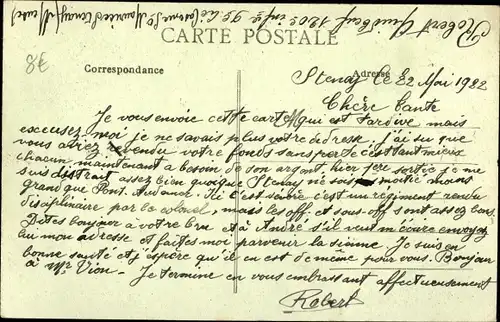 Robert Guidbeuf 120e inf 9e Cie Caserne St Maurice Stenay (Meuse)
8€
CARTE POSTALE
Correspondance
Adresse
Stenay le 22 Mai 1922
Chère Tante
Je vous envoie cette carte qui est tardive mais
excusez moi je ne savais plus votre adresse. j'ai su que
vous aviez rebendu votre fonds sans perte c'est tant mieux
chacun maintenant a besoin de son argent, hier 1ère sortie je me
suis distrait assez bien quoique Stenay ne soit moitié moins
grand que Pont. Audemer. Ici c'est sévère c'est un régiment rendu
disciplinaire par le colonel, mais les off. et sous-off sont assez bons.
Dites bonjour à votre bru et à André s'il veut m'écrire envoyez
lui mon adresse et faites moi parvenir la sienne. Je suis en
bonne santé et j'espère qu'il en est de même pour vous. Bonjour
à Mr Vion. Je termine en vous embrassant affectueusement
Robert